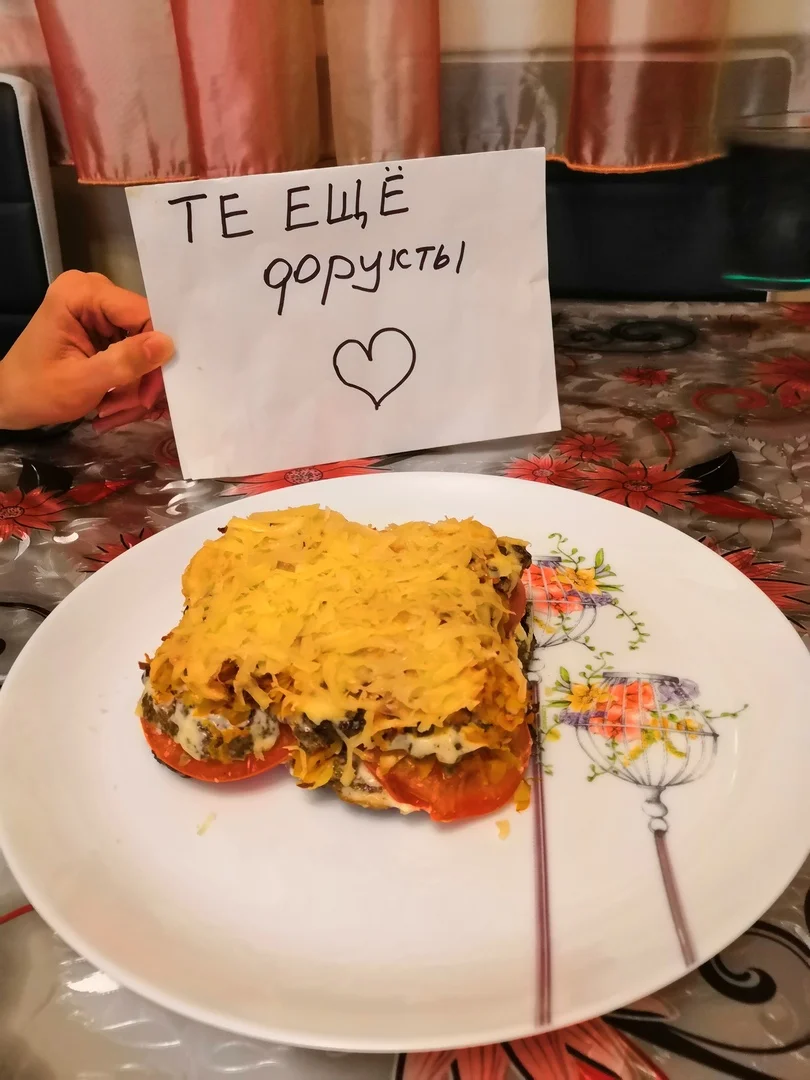 ТЕ ЕЩЁ
форукты